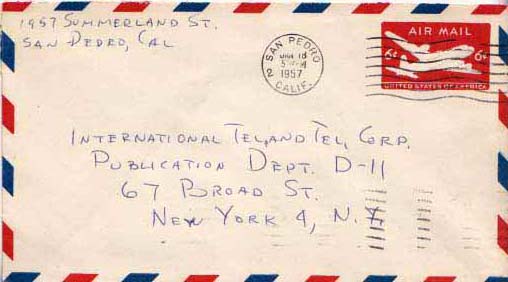 1957 SUMMERLAND ST.
SAN PEDRO, CAL
SAN PEDRO
2
18
1957
CALIF.
AIR MAIL
6¢ 6¢
UNITED STATES OF AMERICA
INTERNATIONAL TEL, AND TEL, CORP.
PUBLICATION DEPT. D-11
67 BROAD ST.
NEW YORK 4, N.Y.